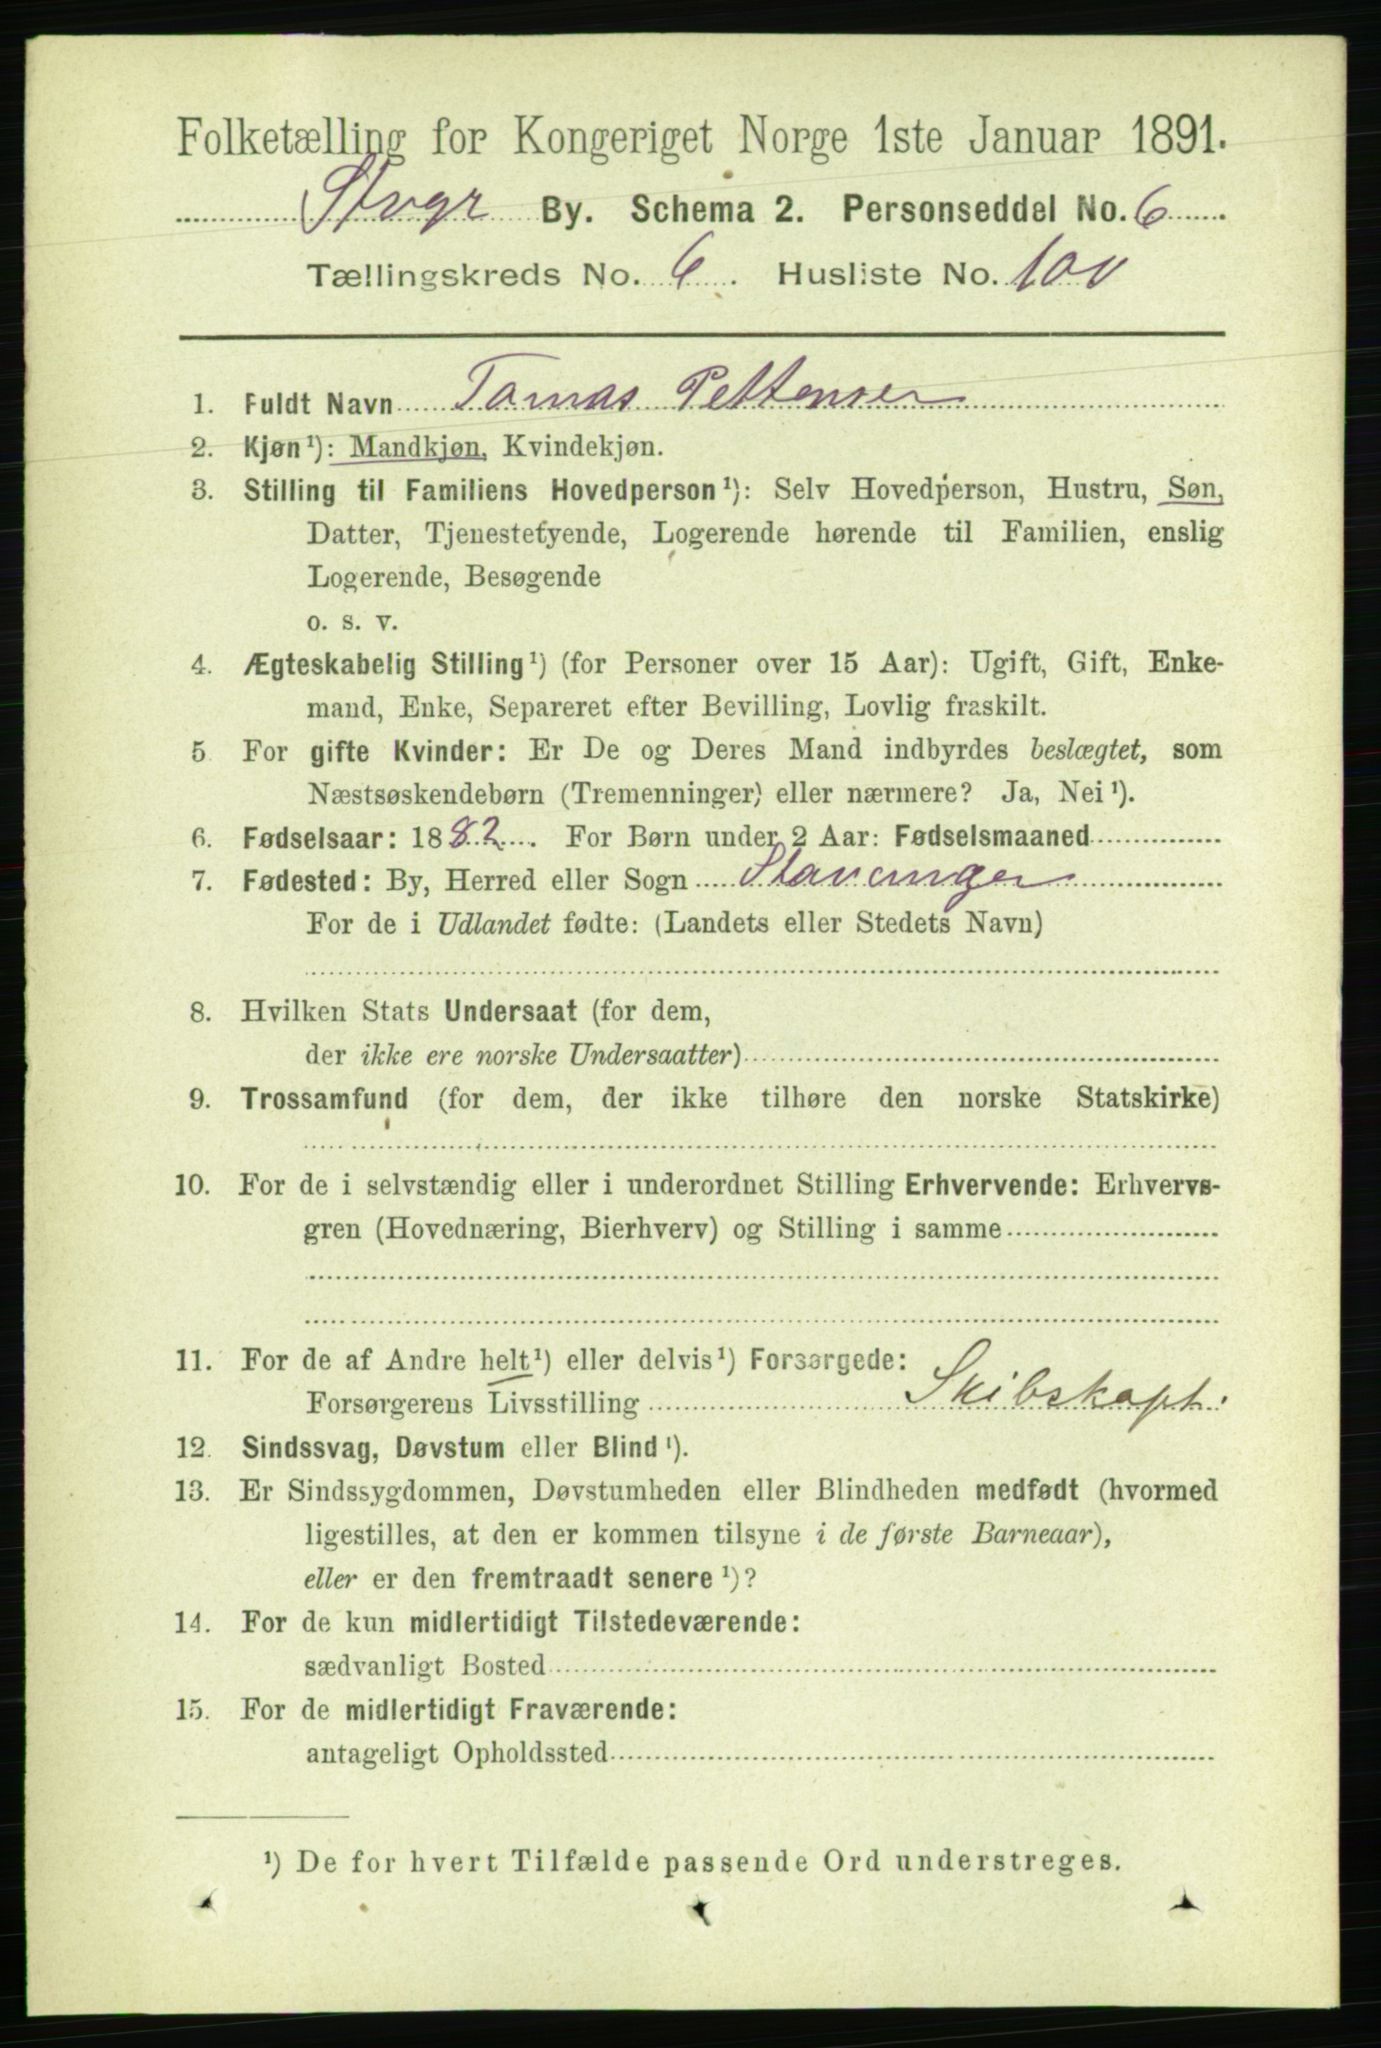 Folketælling for Kongeriget Norge 1ste Januar 1891.
Stvgr By. Schema 2. Personseddel No. 6
Tællingskreds No. 6. Husliste No. 100
1. Fuldt Navn Tomas Pettersen
2. Kjøn¹): Mandkjøn, Kvindekjøn.
3. Stilling til Familiens Hovedperson¹): Selv Hovedperson, Hustru, Søn,
Datter, Tjenestetyende, Logerende hørende til Familien, enslig
Logerende, Besøgende
o. s. v.
4. Ægteskabelig Stilling¹) (for Personer over 15 Aar): Ugift, Gift, Enke-
mand, Enke, Separeret efter Bevilling, Lovlig fraskilt.
5 For gifte Kvinder: Er De og Deres Mand indbyrdes beslægtet, som
Næstsøskendebørn (Tremenninger) eller nærmere? Ja, Nei¹).
6. Fødselsaar: 1882. For Børn under 2 Aar: Fødselsmaaned
7. Fødested: By, Herred eller Sogn Stavanger
For de i Udlandet fødte: (Landets eller Stedets Navn)
8. Hvilken Stats Undersaat (for dem,
der ikke ere norske Undersaatter)
9. Trossamfund (for dem, der ikke tilhøre den norske Statskirke)
10. For de i selvstændig eller i underordnet Stilling Erhvervende: Erhvervs-
gren (Hovednæring, Bierhverv) og Stilling i samme
11. For de af Andre helt¹) eller delvis¹) Forsørgede:
Forsørgerens Livsstilling Skibskapt.
12. Sindssvag, Døvstum eller Blind¹).
13. Er Sindssygdommen, Døvstumheden eller Blindheden medfødt (hvormed
ligestilles, at den er kommen tilsyne i de første Barneaar),
eller er den fremtraadt senere¹)?
14. For de kun midlertidigt Tilstedeværende:
sædvanligt Bosted
15. For de midlertidigt Fraværende:
antageligt Opholdssted
¹) De for hvert Tilfælde passende Ord understreges.